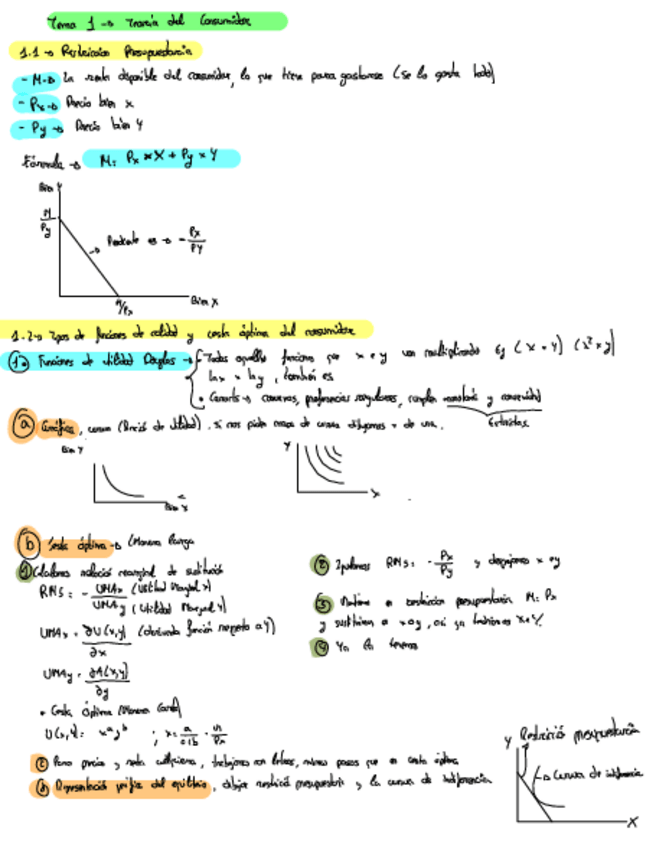 Tema 1 → Teoría del Consumidor
1.1 → Restricción Presupuestaria
- M → La renta disponible del consumidor, lo que tiene para gastarse (se lo gasta todo)
- Px → Precio bien x
- Py → Precio bien Y
Fórmula → M: Px * X + Py * Y
Bien Y
M/Py
→ Pendiente es → - Px/Py
M/Px
Bien X
1.2 → Tipos de funciones de utilidad y cesta óptima del consumidor
1) Funciones de utilidad Douglas → - Todas aquellas funciones que x e y van multiplicando
(x * y) (x² * y)
ln x * ln y, también es
• Convexas, preferencias regulares, cumplen monotonía y convexidad
Estrictas
a) Gráfica, curva (función de utilidad). Si nos piden mapa de curvas dibujamos + de una.
Bien Y
Bien X
Y
X
b) Cesta óptima → (Manera larga
1) Calculamos relación marginal de sustitución
RMS = - UMAx (Utilidad Marginal x) / UMAy (Utilidad Marginal y)
UMAx = ∂U(x,y) / ∂x (derivada función respecto a
UMAy = ∂U(x,y) / ∂y
• Cesta Óptima (Manera Corta)
U(x,y) = x^a y^b ; x = a/a+b · M/Px
2) Igualamos RMS = - Px/Py y despejamos x o y
3) en restricción presupuestaria M = Px
y sustituimos x o y, así ya tendríamos x e y.
4) Ya lo tenemos
c) Para precio y renta cualquiera, trabajamos con letras, mismos pasos que en cesta óptima
d) Representación gráfica del equilibrio, dibujar restricción presupuestaria y la curva de indiferencia
Y
Restricción presupuestaria
→ Curva de indiferencia
X